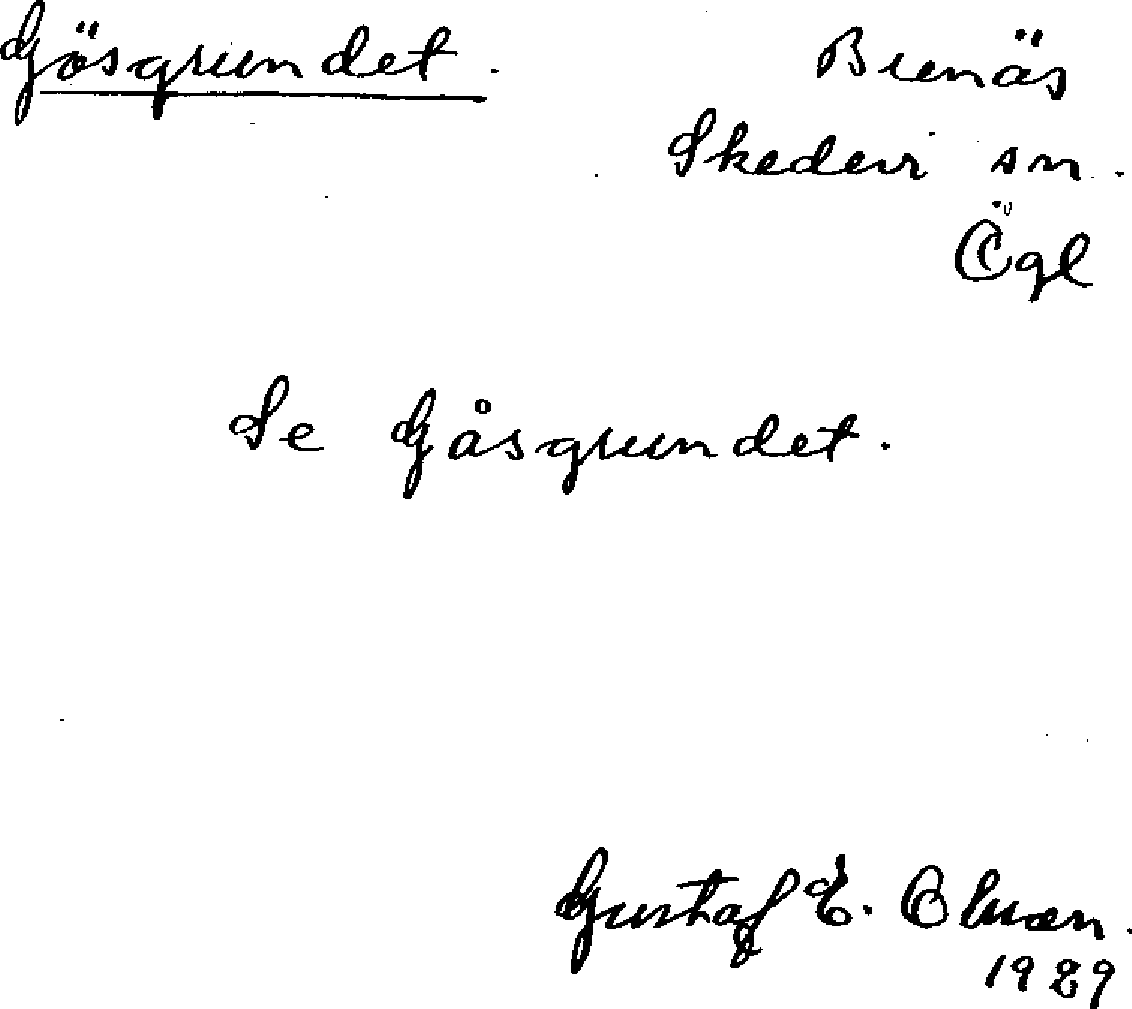 Gösgrundet. Bränäs
Skedevi sn.
Ögl
Se Gåsgrundet.
Gustaf E. Olman.
1929